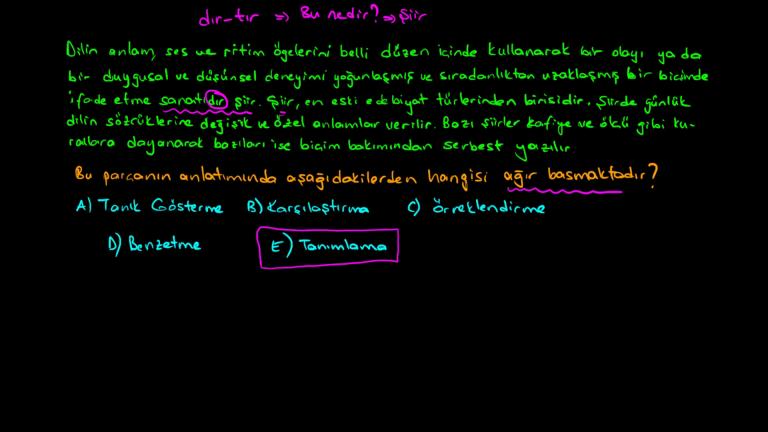 dır-tır => Bu nedir? => Şiir
Dilin anlam, ses ve ritim ögelerini belli düzen içinde kullanarak bir olayı ya da
bir duygusal ve düşünsel deneyimi yoğunlaşmış ve sıradanlıktan uzaklaşmış bir biçimde
ifade etme sanatıdır şiir. Şiir, en eski edebiyat türlerinden birisidir. Şiirde günlük
dilin sözcüklerine değişik ve özel anlamlar verilir. Bazı şiirler kafiye ve ölçü gibi ku-
rallara dayanarak bazıları ise biçim bakımından serbest yazılır
Bu parçanın anlatımında aşağıdakilerden hangisi ağır basmaktadır?
A) Tanık Gösterme B) Karşılaştırma C) Örneklendirme
D) Benzetme E) Tanımlama